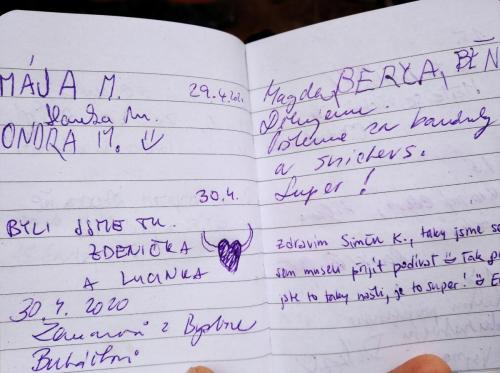 MÁJA M.
29.4.202
Honza M.
ONDRA M.
30.4.
BYLI JSME TU.
ZDENIČKA
A LUCINKA
30.4.2020
z Bystrc
Magda, BERČA,
Děkujeme.
za bandurky
a snickers.
Super!
Zdravím Simču K., taky jsme se
sem museli přijít podívat Tak p
jste to taky našli, je to super!